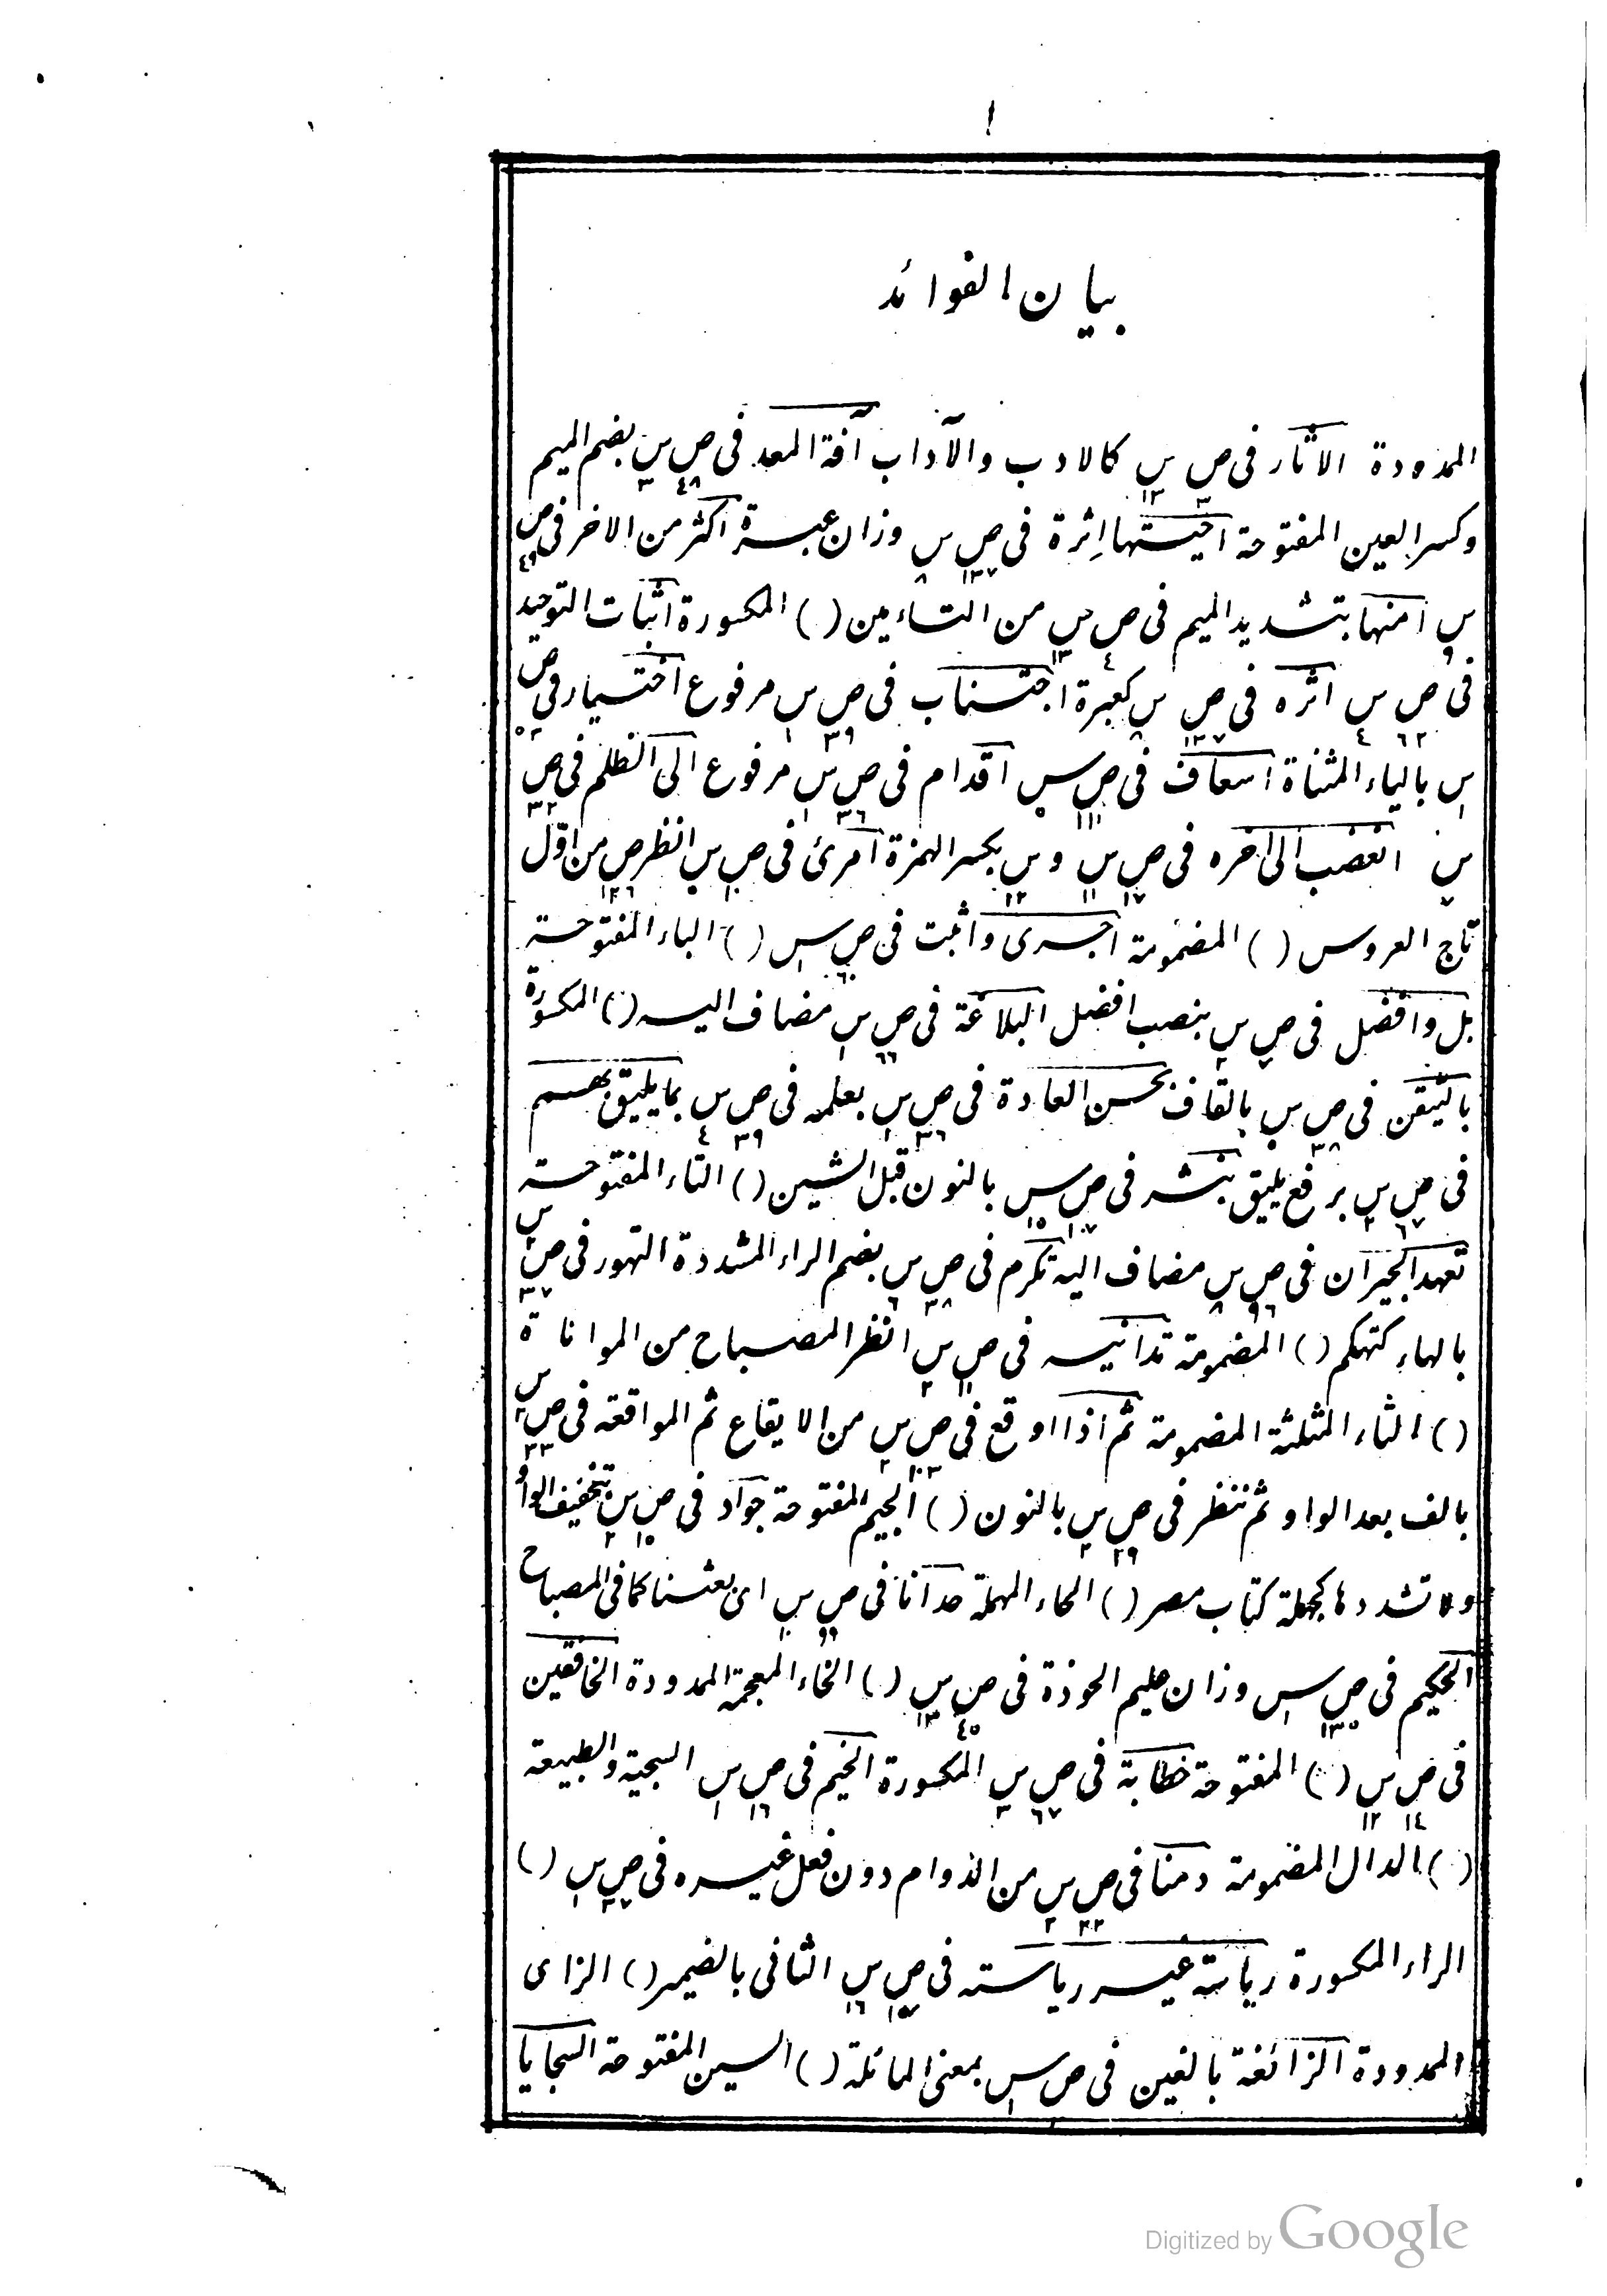 بيان الفوائد
الممدودة الاثار فى ص ٣ س ١٣ كالادب والآداب آفة المعد فى ص ٤٨ س ٣ بضم الميم
وكسر العين المفتوحة احيتها اثرة فى ص ١٣٧ س ٨ وزان عبسرة اكثر من الاخر فى ص ٤٩
س ٩ امنها بتشديد الميم فى ص ٤ س ١٣ من التاءين ( ) المكسورة اثبات التوحيد
فى ص ٦٢ س ٤ اثره فى ص ١٣٧ س ٨ كعبرة اجتناب فى ص ٣٩ س ١ مرفوع اختيار فى ص ٥٢
س ١ بالياء المثناة اسعاف فى ص ١١١ س ٥ اقدام فى ص ٣٦ س ١ مرفوع الى الظلم فى ص ٣٢
س ٧ الغضب الى اخره فى ص ١٧ س ١١ وس ١٢ بكسر الهمزة امرئ فى ص س انظر ص ١٢٦ من اول
تاج العروس ( ) المضمومة اجرى واثبت فى ص ٦٠ س ١ ( ) الباء المفتوحة
بل وافضل فى ص ٧ س ٢ بنصب افضل البلاغة فى ص ٦٦ س ١ مضاف اليه ( ) المكسورة
بالتيقن فى ص ٣٨ س بالقاف بحسن العادة فى ص ٣٦ س ١ بعلمه فى ص ٣٩ س ٤ بما يليق بهم
فى ص ٦٧ س ٢ برفع يليق بنشر فى ص ١٠٧ س ١٥ بالنون قبل الشين ( ) التاء المفتوحة
تعهد الجيران فى ص ٩٦ س ٨ مضاف اليه تكرم فى ص ٣٨ س ٦ بضم الراء المشددة التهور فى ص ٣٧ س ٢
بالهاء كتهكم ( ) المضمومة تدانيه فى ص ١١ س ٢ انظر المصباح من المواناة
( ) الثاء المثلثة المضمومة ثم اذا اوقع فى ص ١٠٣ س ٢ من الايقاع ثم المواقعه فى ص ٢٣ س ٢
بالف بعد الواو ثم ننظر فى ص ٢٩ س ٢ بالنون ( ) الجيم المفتوحة جواد فى ص ١٥ س ٢ بتخفيف الواو
ولا تشددها كجهلة كتاب مصر ( ) الحاء المهملة حدانا فى ص ٩٩ س ١٠ اى بعثنا كما فى المصباح
الحكيم فى ص ١٣٥ س ١ وزان حليم الحوذة فى ص ٤٥ س ١٣ ( ) الخاء المعجمة الممدودة الخافقين
فى ص ١٤ س ١٢ ( ) المفتوحة خطابة فى ص ٦٧ س ٣ المكسورة الخيم فى ص ١٦ س ١ السجية والطبيعة
( ) الدال المضمومة دمنا فى ص ٣٢ س ٢ من الدوام دون فعل غيره فى ص ٣٧ س ١ ( )
الراء المكسورة رياسة غير رياسته فى ص ١٥٧ س ١٦ الثانى بالضمير ( ) الزاى
الممدودة الزائغة بالغين فى ص س ١ بمعنى المائلة ( ) السين المفتوحة السجايا
Digitized by Google